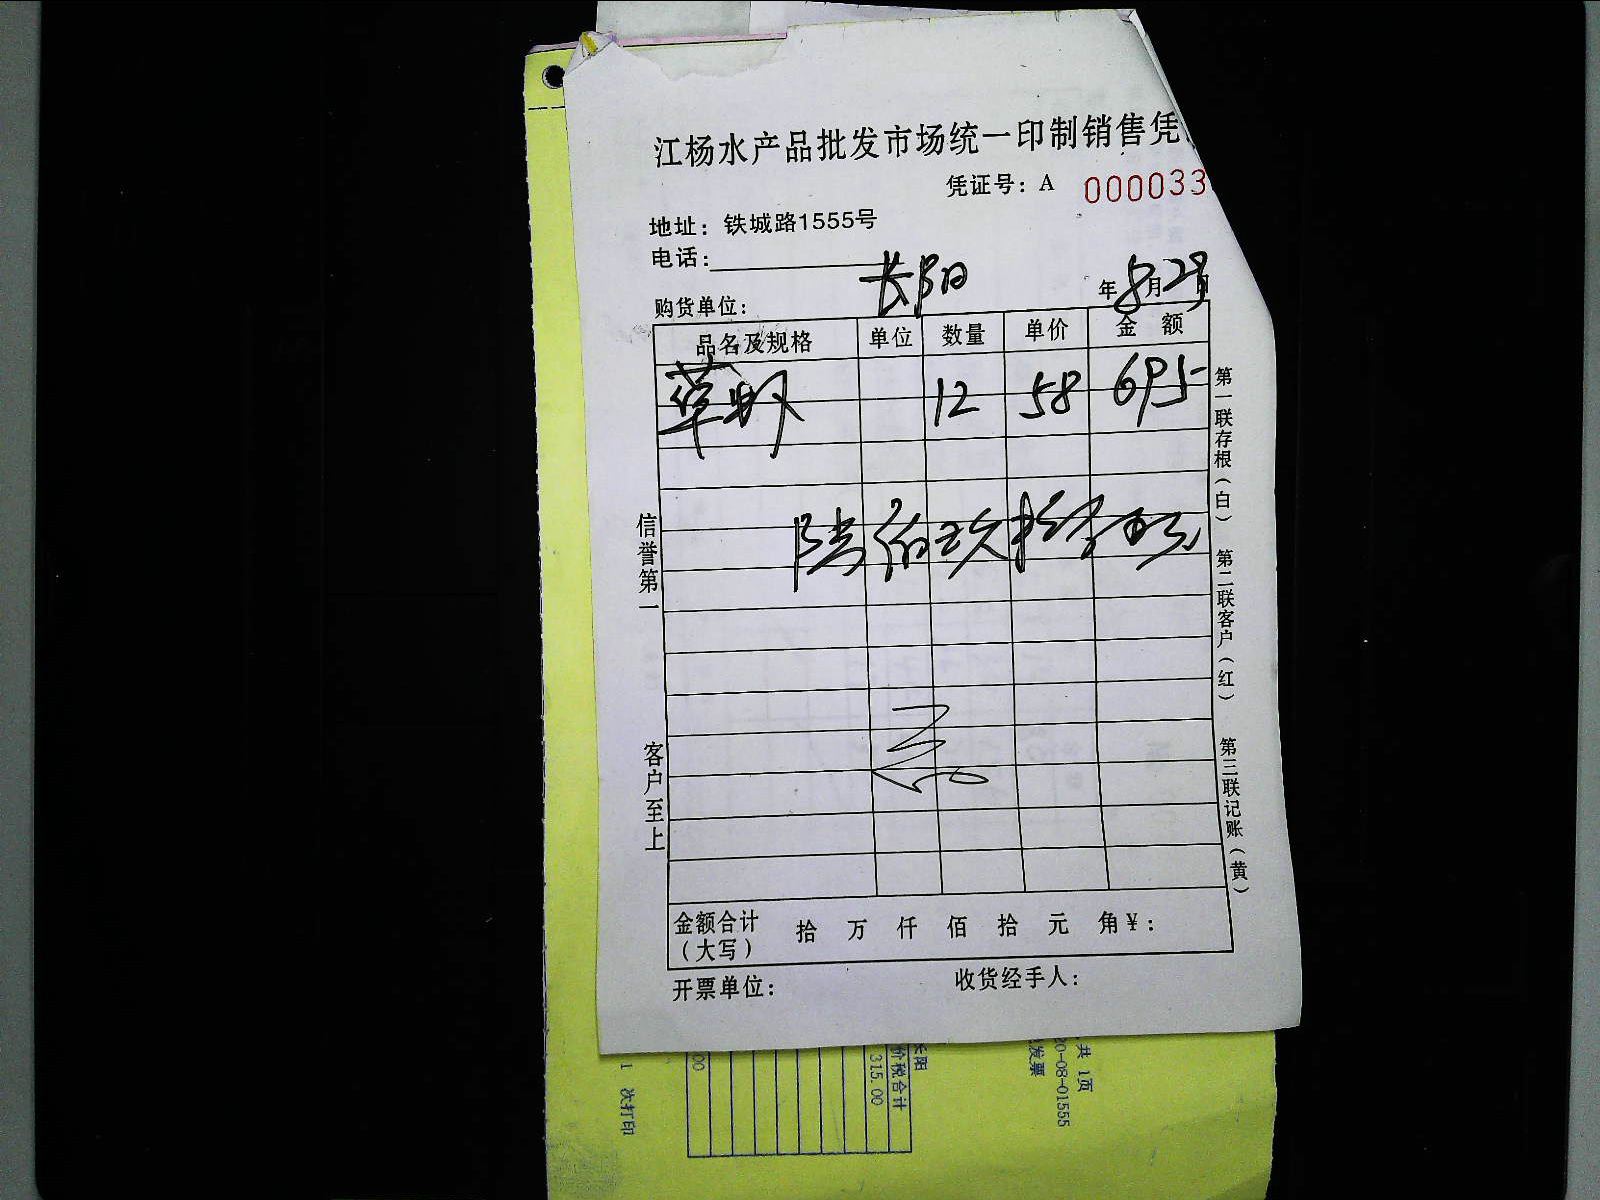 江杨水产品批发市场统一印制销售凭
凭证号：A 000033
地址：铁城路1555号
电话：
购货单位： 长阳 年 8月29日
品名及规格 单位 数量 单价 金额
草虾 12 58 695
陆佰玖拾伍元
金额合计（大写） 拾 万 仟 佰 拾 元 角 ¥：
开票单位： 收货经手人：
信誉第一
客户至上
第一联存根（白）
第二联客户（红）
第三联记账（黄）
共 1页
20-08-01555
发票
长阳
价税合计
315.00
00
1 次打印